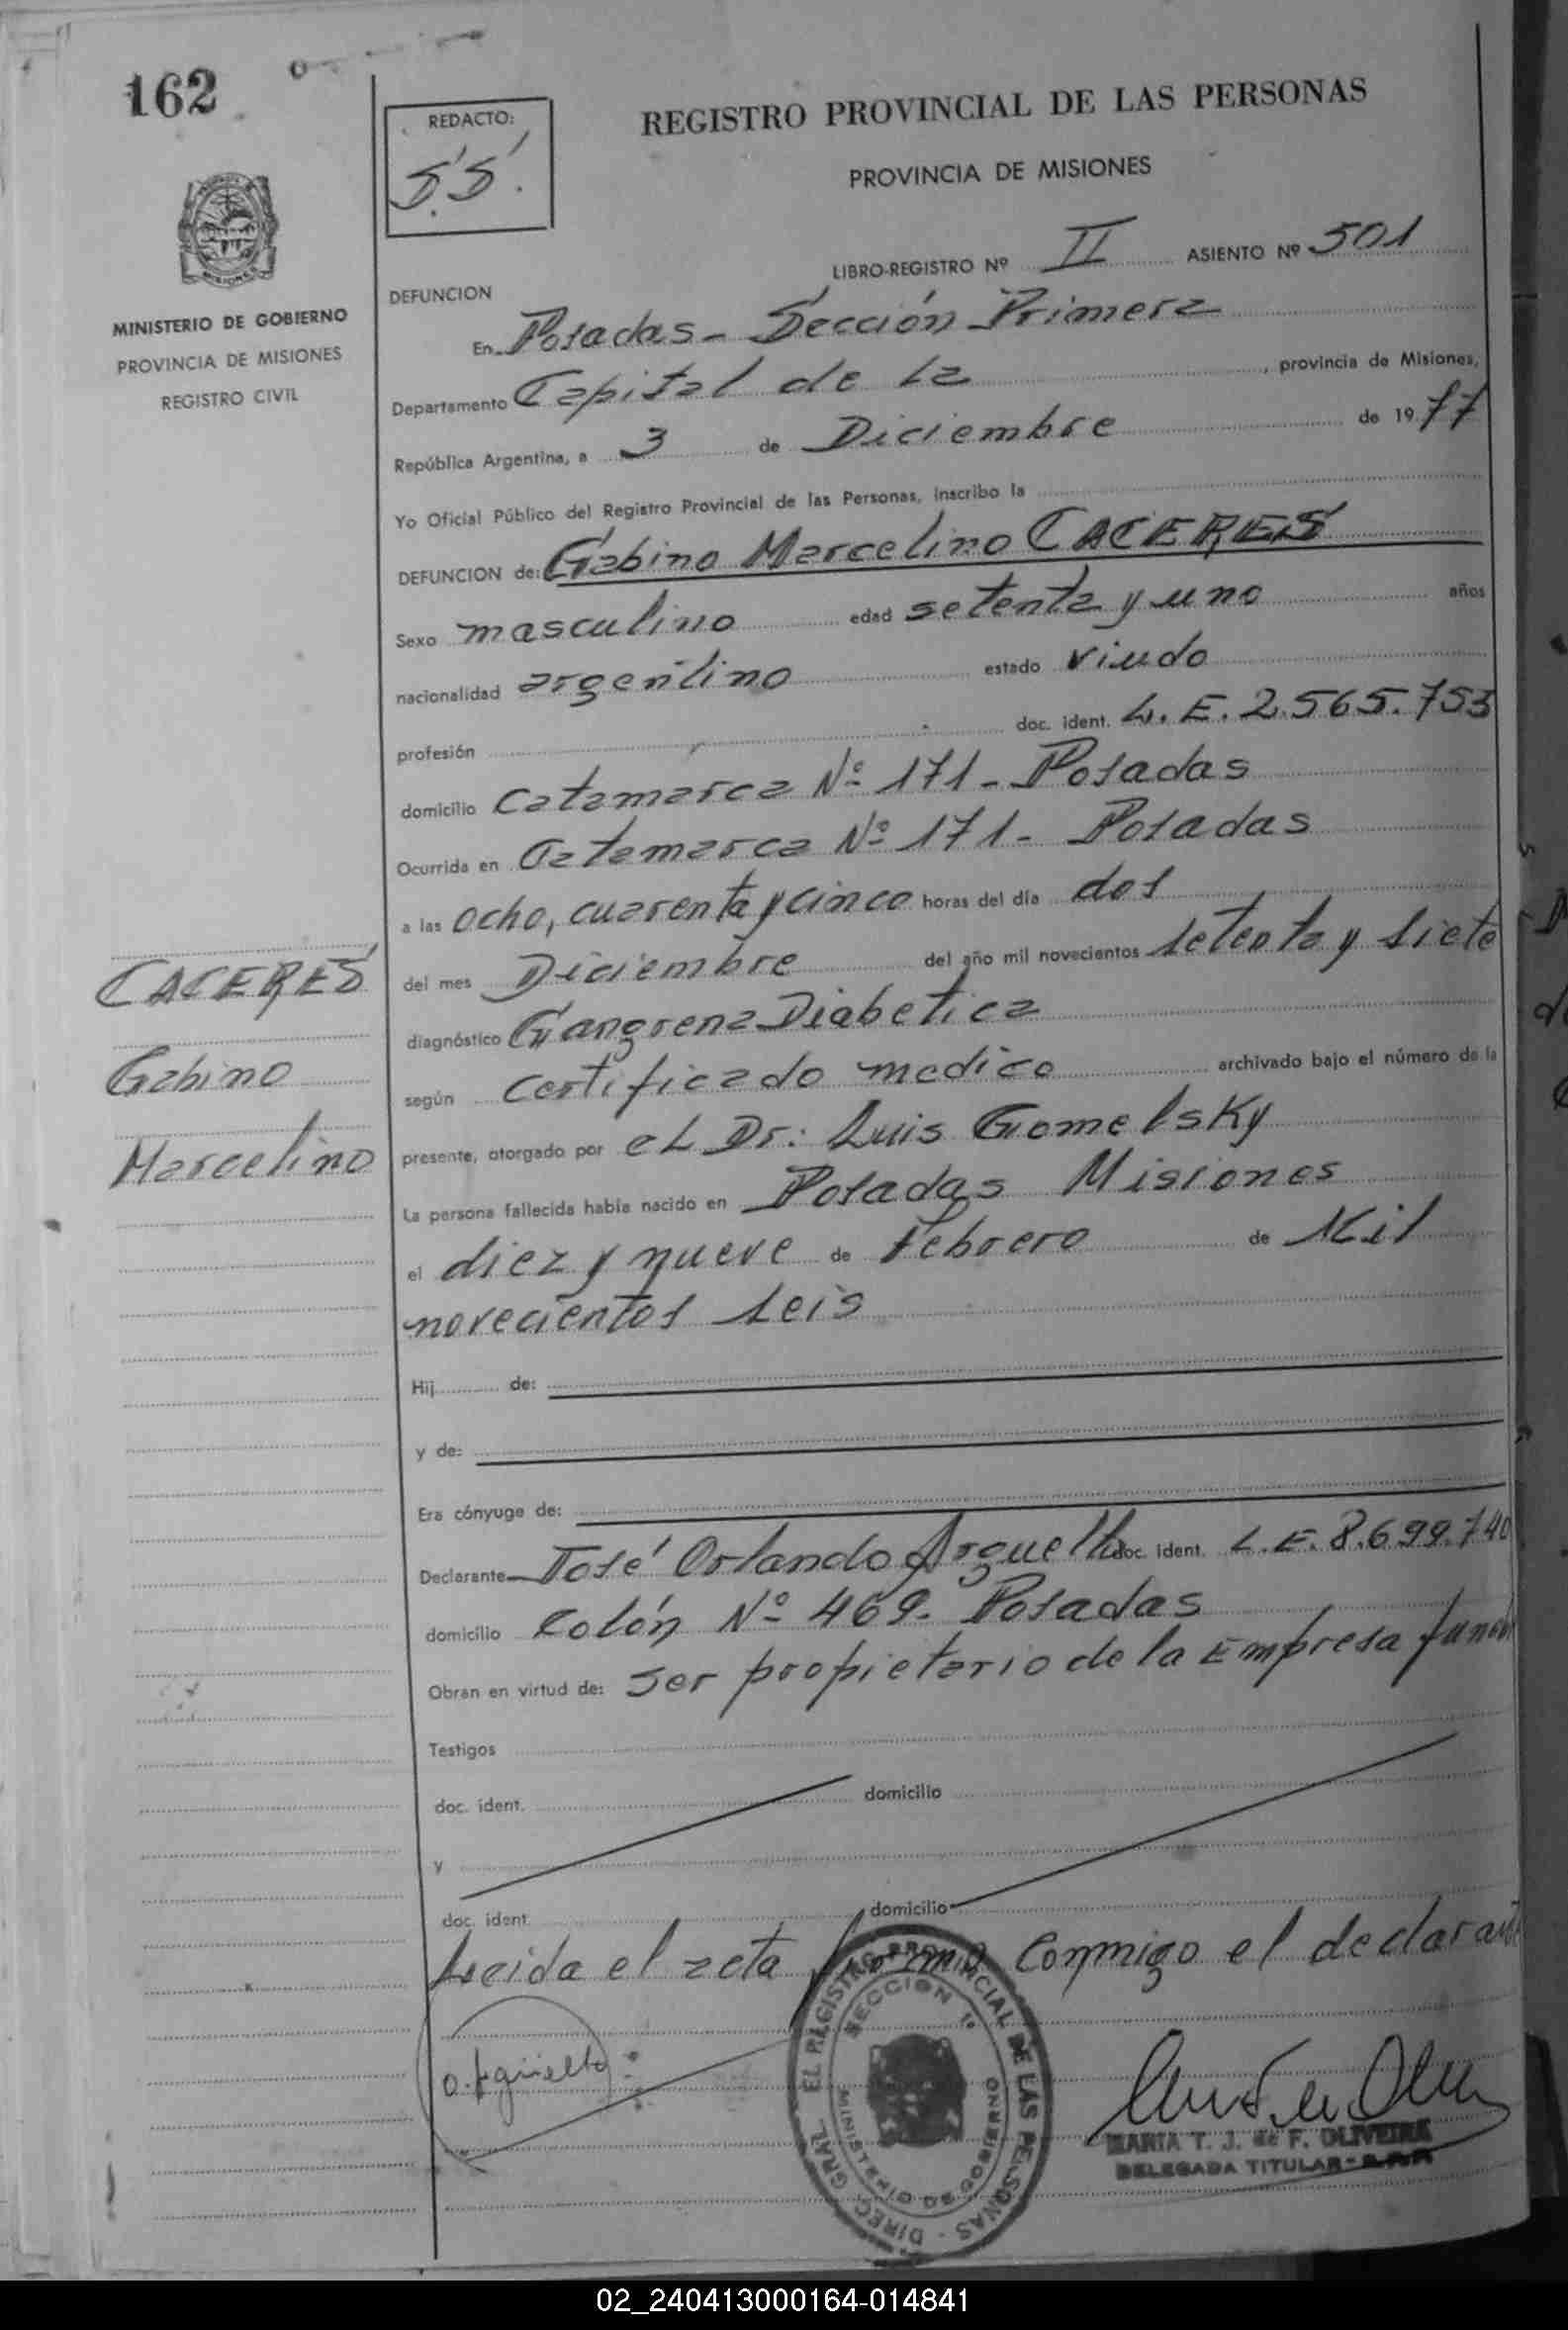 162
REDACTO:
S.S.
REGISTRO PROVINCIAL DE LAS PERSONAS
PROVINCIA DE MISIONES
MISIONES
MINISTERIO DE GOBIERNO
PROVINCIA DE MISIONES
REGISTRO CIVIL
LIBRO-REGISTRO Nº II ASIENTO Nº 501
DEFUNCION
En Posadas - Sección Primera
Departamento Capital de la , provincia de Misiones,
República Argentina, a 3 de Diciembre de 1977
Yo Oficial Público del Registro Provincial de las Personas, inscribo la
DEFUNCION de: Gabino Marcelino CACERES
Sexo masculino edad setenta y uno años
nacionalidad argentino estado viudo
profesión doc. ident. L. E. 2.565.753
domicilio Catamarca Nº 171 - Posadas
Ocurrida en Catamarca Nº 171 - Posadas
a las ocho, cuarenta y cinco horas del día dos
del mes Diciembre del año mil novecientos setenta y siete
diagnóstico Gangrena Diabetica
según certificado medico archivado bajo el número de la
presente, otorgado por el Dr: Luis Gomelsky
La persona fallecida había nacido en Posadas Misiones
el diez y nueve de Febrero de Mil
novecientos seis
Hij de:
y de:
Era cónyuge de:
Declarante José Orlando Arguello doc. ident. L. E. 8.699.740
domicilio Colón Nº 469 - Posadas
Obran en virtud de: ser propietario de la Empresa
Testigos
doc. ident. domicilio
y
doc. ident. domicilio
Leida el acta firma Conmigo el
CACERES
Gabino
Marcelino
DIREC. GRAL. EL REGISTRO PROVINCIAL DE LAS PERSONAS
SECCION 1º
MINISTERIO DE GOBIERNO
MARIA T. J. de F. OLIVEIRA
DELEGADA TITULAR
02_240413000164-014841